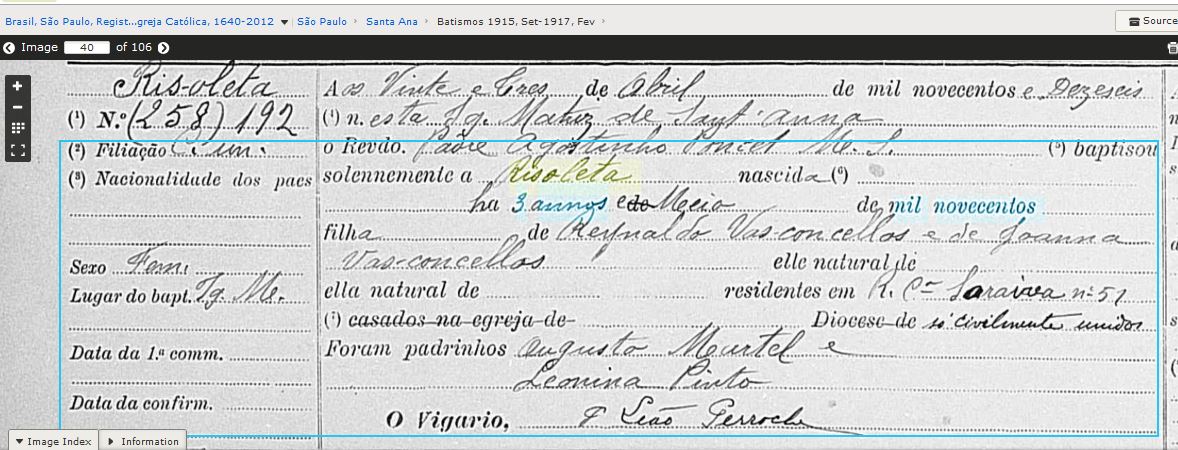 Brasil, São Paulo, Regist...greja Católica, 1640-2012 São Paulo Santa Ana Batismos 1915, Set-1917, Fev
Source
Image 40 of 106
Risoleta
(¹) N.º (258) 192
(²) Filiação
(³) Nacionalidade dos paes
Sexo Fem.
Lugar do bapt. Ig. Me.
Data da 1.ª comm.
Data da confirm.
Aos Vinte e Tres de Abril de mil novecentos e Dezeseis
(⁴) n.esta Ig. Matriz de Sant'anna
o Revdo. Padre Agostinho Poncet M. S. (⁵) baptisou
solennemente a Risoleta nascida (⁶)
ha 3 annos e de Meio de mil novecentos
filha de Reynaldo Vasconcellos e de Joanna
Vasconcellos elle natural de
ella natural de residentes em R. Cel Saraiva nº 51
(⁷) casados na egreja de Diocese de só civilmente unidos
Foram padrinhos Augusto Meurtel e
Leonina Pinto
O Vigario, P Leão Perroche
Image Index
Information